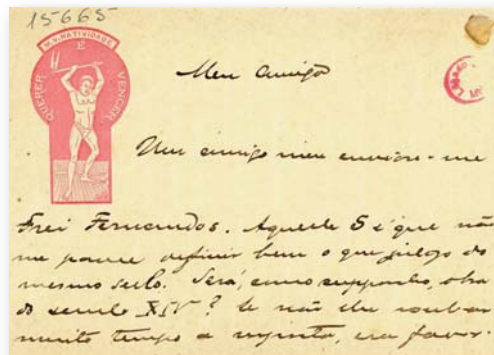 15665
M.V. NATIVIDADE
QUERER É VENCER
Meu amigo
Um amigo meu enviou-me
Frei Fernandos. Aquelle S é que não
me parece definir bem o que julgo do
mesmo sello. Será, como supponho, obra
do seculo XIV? Se não lhe roubar
muito tempo a resposta, era favor.